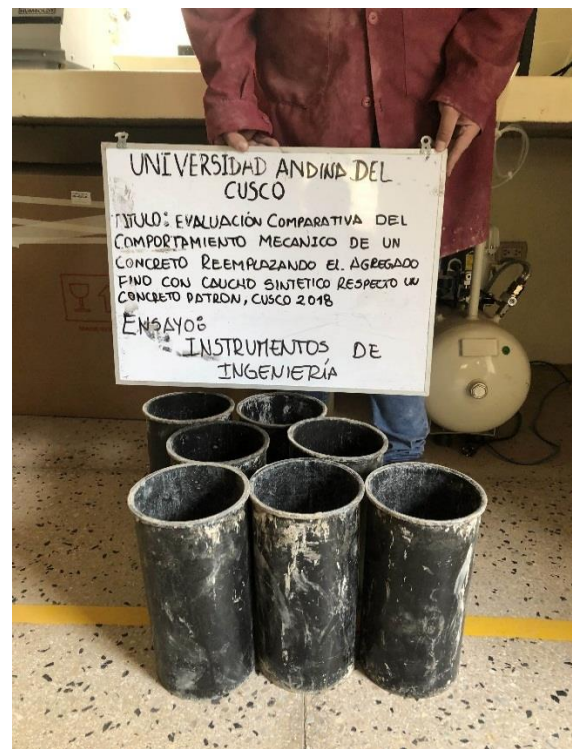 UNIVERSIDAD ANDINA DEL
CUSCO
TITULO: EVALUACIÓN COMPARATIVA DEL
COMPORTAMIENTO MECANICO DE UN
CONCRETO REEMPLAZANDO EL AGREGADO
FINO CON CAUCHO SINTETICO RESPECTO UN
CONCRETO PATRON, CUSCO 2018
ENSAYO:
INSTRUMENTOS DE
INGENIERÍA